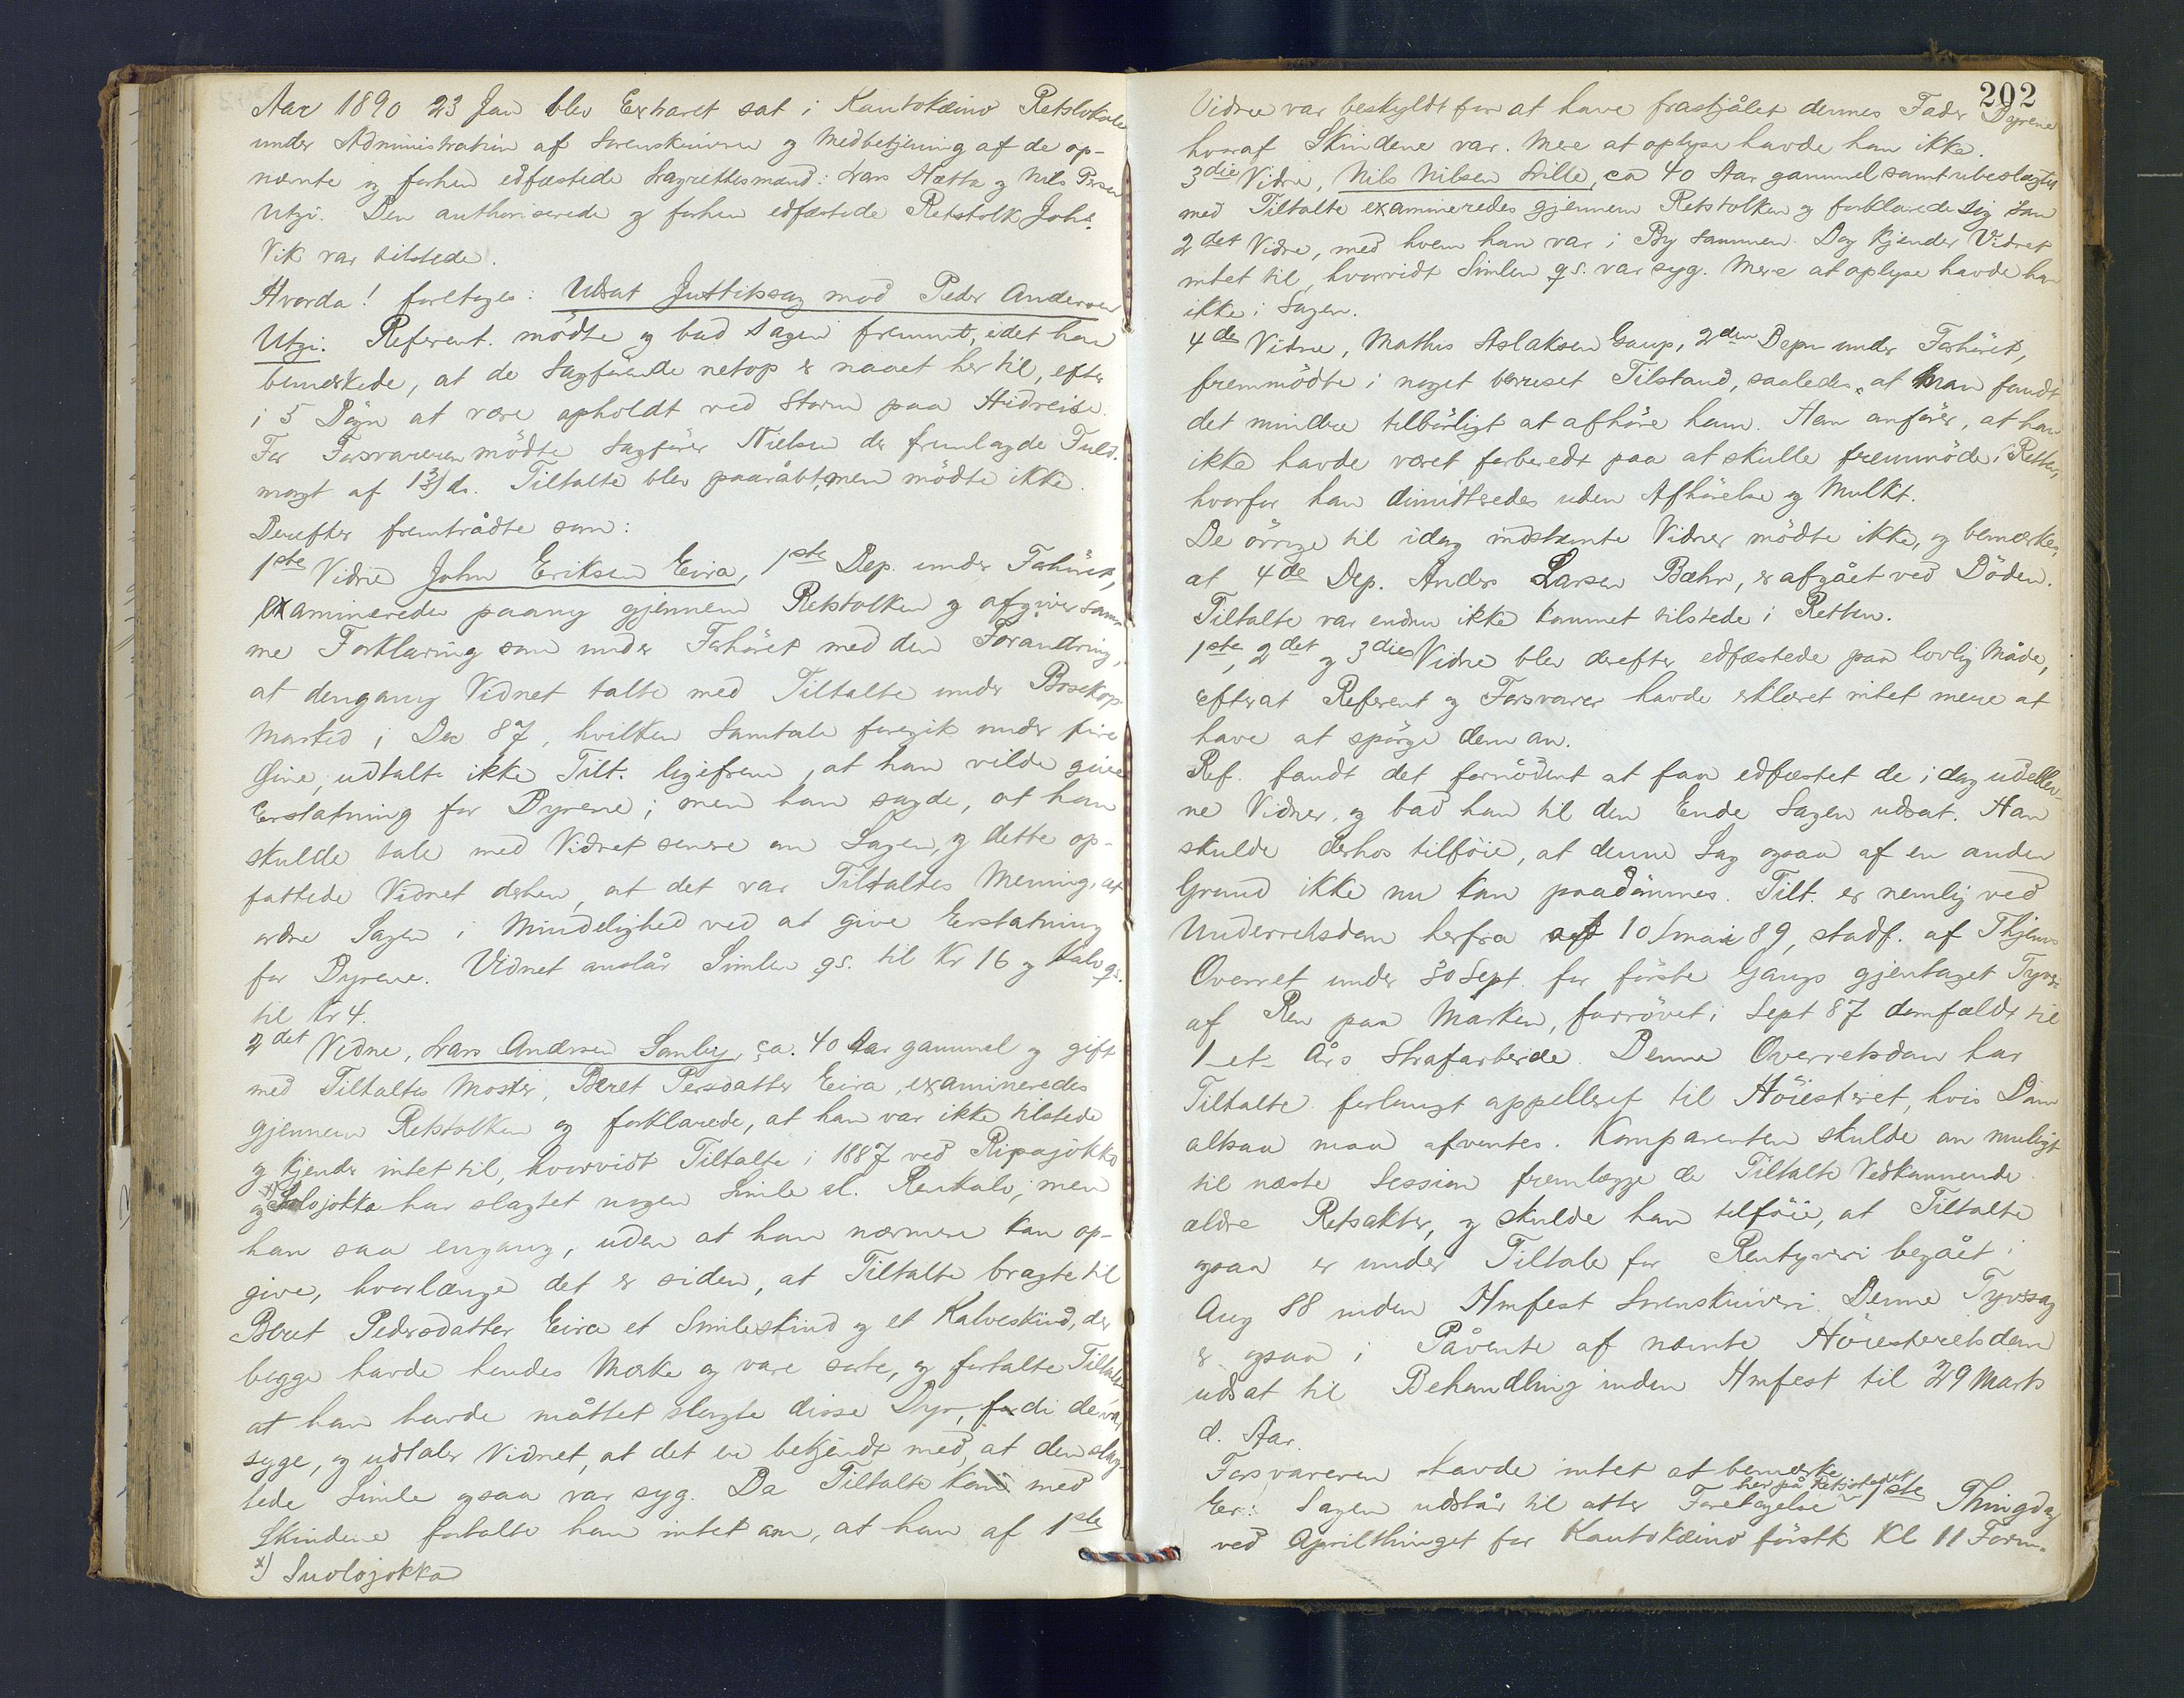 Aar 1890 23 Jan blev Extraret sat i Kautokeino Retslokale
under Administration af Sorenskriveren og Medbetjening af de op-
nævnte og forhen edfæstede Lagrettesmænd: Lars Hætta og Nils Persen
Utzi. Den authoriserede og forhen edfæstede Retstolk Johs.
Vik var tilstede.
Hvorda! foretoges: Udsat Justitssag mod Peder Andersen
Utzi. Referent. mödte og bad Sagen fremmet, idet han
bemærkede, at de Sagförende netop er naaet her til, efter
i 5 Dögn at være opholdt ved Storm paa Hidreise.
For Forsvareren mödte Sagförer Nielsen der fremlagde Fuld-
magt af 13/ ds. Tiltalte blev paaråbt, men mödte ikke.
Derefter fremtrådte som:
1ste Vidne John Eriksen Eira, 1ste Dep. under Forhöret,
examineredes paany gjennem Retstolken og afgiver sam-
me Forklaring som under Forhöret med den Forandring,
at dengang Vidnet talte med Tiltalte under Bosekop
Marked i Dec 87, hvilken Samtale foregik under fire
Öine, udtalte ikke Tilt. ligefrem, at han vilde give
Erstatning for Dyrene; men han sagde, at han
skulde tale med Vidnet senere om Sagen, og dette op-
fattede Vidnet derhen, at det var Tiltaltes Mening, at
ordne Sagen i Mindelighed ved at give Erstatning
for Dyrene. Vidnet anslår Simlen qs. til Kr 16 og Kalv qs.
til Kr 4.
2det Vidne, Lars Andersen Somby, ca. 40 Aar gammel og gift
med Tiltaltes Moster, Beret Persdatter Eira, examineredes
gjennem Retstolken og forklarede, at han var ikke tilstede
og kjender intet til, hvorvidt Tiltalte i 1887 ved Ripajökko
x) og Solojokka har slagtet nogen Simle el. Renkalv; men
han saa engang, uden at han nærmere kan op-
give, hvorlænge det er siden, at Tiltalte bragte til
Beret Pedersdatter Eira et Simleskind og et Kalveskind, der
begge havde hendes Mærke og vare sorte, og fortalte Tiltalte
at han havde måttet slagte disse Dyr, fordi de var
syge, og udtaler Vidnet, at det er bekjendt med, at den slag-
tede Simle ogsaa var syg. Da Tiltalte kom med
Skindene fortalte han intet om, at han af 1ste
x) Suolojokka
202
Vidne var beskyldt for at have frastjålet dennes Fader Dyrene
hvoraf Skindene var. Mere at oplyse havde han ikke.
3die Vidne, Nils Nilsen Lille, ca 40 Aar gammel samt ubeslægtet
med Tiltalte examineredes gjennem Retstolken og forklarede sig som
2det Vidne, med hvem han var i By sammen. Dog kjender Vidnet
intet til, hvorvidt Simlen qs. var syg. Mere at oplyse havde han
ikke i Sagen.
4de Vidne, Mathis Aslaksen Gaup, 2den Depn under Forhöret,
fremmödte i noget beruset Tilstand, saaledes at man fandt
det mindre tilbörligt at afhöre ham. Han anförer, at han
ikke havde været forberedt paa at skulle fremmöde i Retten,
hvorfor han dimitteredes uden Afhörelse og Mulkt.
De övrige til idag indstevnte Vidner mödte ikke, og bemærkes,
at 4de Dep. Anders Larsen Bæhr, er afgået ved Döden.
Tiltalte var endnu ikke kommet tilstede i Retten.
1ste, 2det og 3die Vidne blev derefter edfæstede paa lovlig Måde,
efterat Referent og Forsvarer havde erklæret intet mere at
have at spörge dem om.
Ref. fandt det fornödent at faa edfæstet de i dag udeblev-
ne Vidner, og bad han til den Ende Sagen udsat. Han
skulde derhos tilföie, at denne Sag ogsaa af en anden
Grund ikke nu kan paadömmes. Tilt. er nemlig ved
Underretsdom herfra af 10/mai 89, stadf. af Thjems
Overret under 30 Sept. for förste Gangs gjentaget Tyveri
af Ren paa Marken, forrövet i Sept 87 domfældt til
1-et- Års Strafarbeide. Denne Overretsdom har
Tiltalte forlangt appelleret til Höiesteret, hvis Dom
altsaa maa afventes. Komparenten skulde om muligt
til næste Session fremlægge de Tiltalte Vedkommende
ældre Retsakter, og skulde han tilföie, at Tiltalte
ogsaa er under Tiltale for Rentyveri begået i
Aug 88 inden Hmfest Sorenskriveri. Denne Tyvssag
er ogsaa i Påvente af nævnte Höiesteretsdom
udsat til Behandling inden Hmfest til 29 Marts
d. Aar.
Forsvareren havde intet at bemærke.
Er: Sagen udstår til atter Foretagelse her på Retsstedet 1ste Thingdag
ved Aprilthinget for Kautokeino förstk Kl 11 Form.